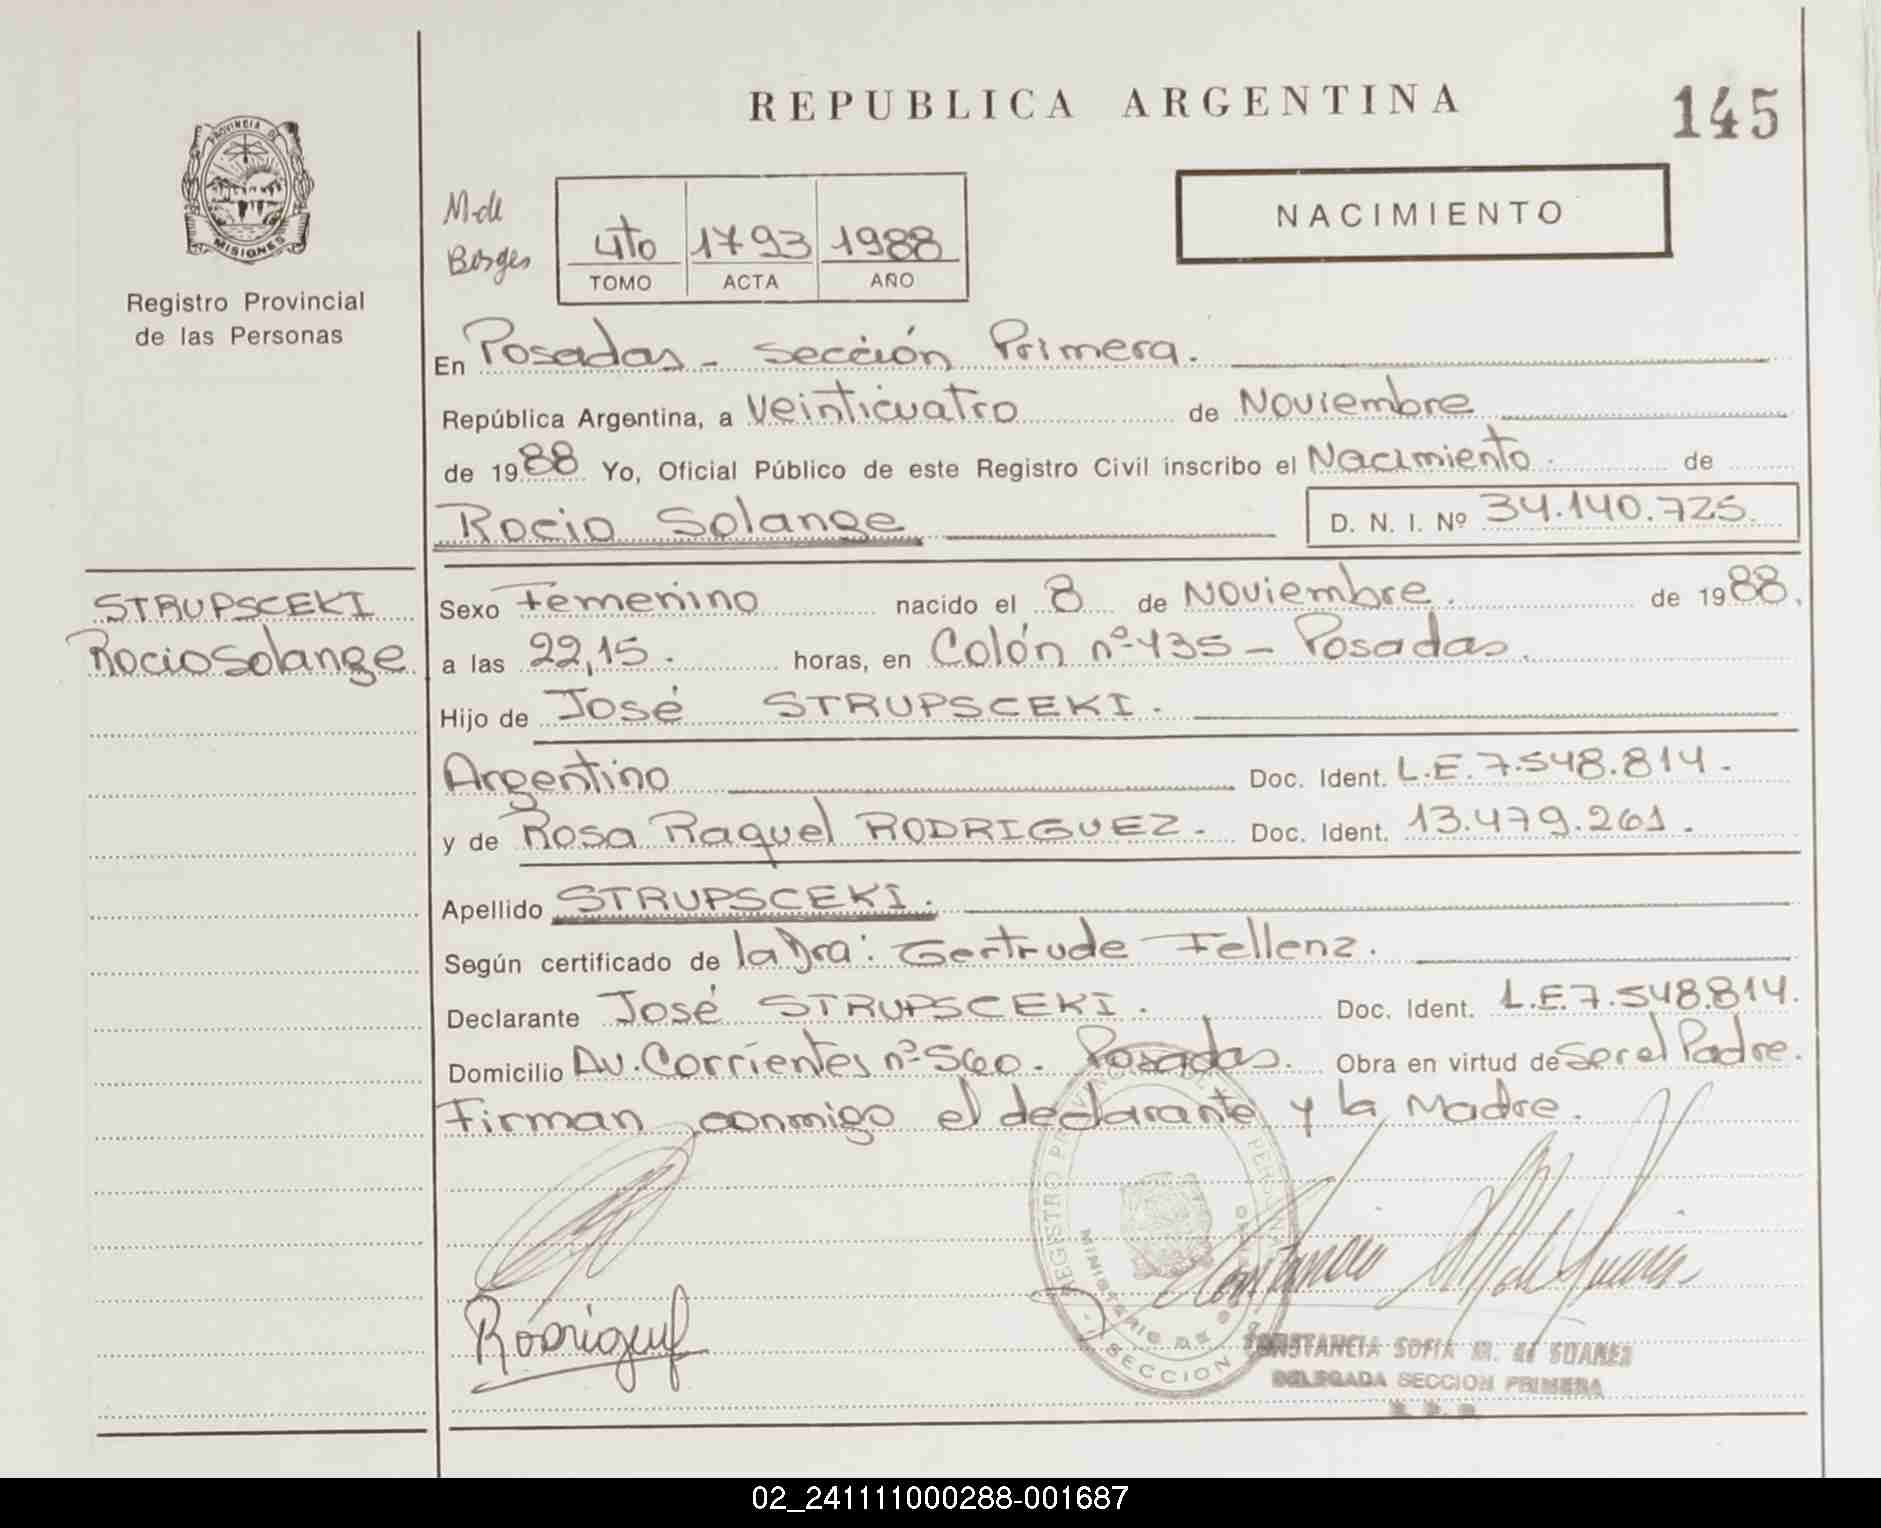 REPUBLICA ARGENTINA
145
PROVINCIA DE
MISIONES
Registro Provincial
de las Personas
M. de
Borges
4to 1793 1988
TOMO ACTA AÑO
NACIMIENTO
En Posadas - Sección Primera.
República Argentina, a Veinticuatro de Noviembre
de 1988 Yo, Oficial Público de este Registro Civil inscribo el Nacimiento. de
Rocio Solange D. N. I. Nº 34.140.725.
STRUPSCEKI
Rocio Solange
Sexo Femenino nacido el 8 de Noviembre. de 1988.
a las 22,15. horas, en Colón nº 435 - Posadas.
Hijo de José STRUPSCEKI.
Argentino Doc. Ident. L.E. 7.548.814.
y de Rosa Raquel RODRIGUEZ. Doc. Ident. 13.479.261.
Apellido STRUPSCEKI.
Según certificado de la Dra: Gertrude Fellenz.
Declarante José STRUPSCEKI. Doc. Ident. L.E. 7.548.814.
Domicilio Av. Corrientes nº 560. Posadas. Obra en virtud de Ser el Padre.
Firman conmigo el declarante y la Madre.
REGISTRO
MINISTERIO DE
SECCION
CONSTANCIA SOFIA M. de SUAREZ
DELEGADA SECCION PRIMERA
02_241111000288-001687